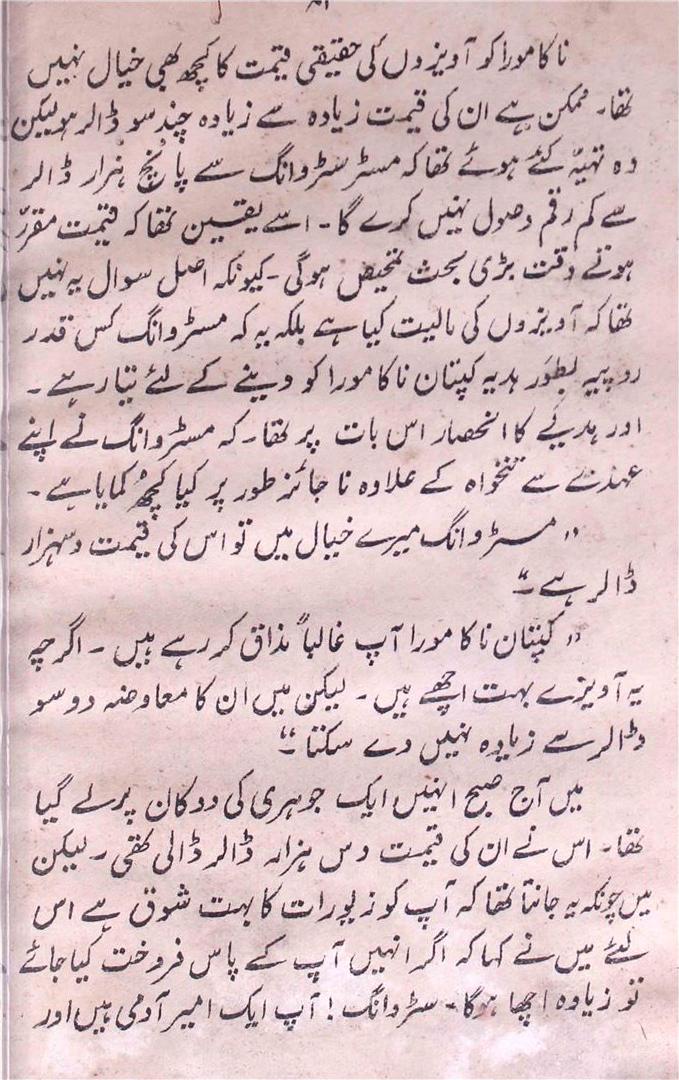 ناکامورا کو آویزوں کی حقیقی قیمت کا کچھ بھی خیال نہیں
تھا۔ ممکن ہے ان کی قیمت زیادہ سے زیادہ چند سو ڈالر ہو لیکن
وہ تہیّہ کئے ہوئے تھا کہ مسٹر سڑوانگ سے پانچ ہزار ڈالر
سے کم رقم وصول نہیں کرے گا۔ اسے یقین تھا کہ قیمت مقررّ
ہوتے وقت بڑی بحث تمحیص ہوگی۔ کیونکہ اصل سوال یہ نہیں
تھا کہ آویزوں کی مالیت کیا ہے بلکہ یہ کہ مسڑوانگ کس قدر
روپیہ بطور ہدیہ کپتان ناکامورا کو دینے کے لئے تیار ہے۔
اور ہدیئے کا انحصار اس بات پر تھا۔ کہ مسڑوانگ نے اپنے
عہدے سے تنخواہ کے علاوہ ناجائز طور پر کیا کچھ کمایا ہے۔
”مسڑوانگ میرے خیال میں تو اس کی قیمت دسہزار
ڈالر ہے۔“
”کپتان ناکامورا آپ غالباً مذاق کر رہے ہیں۔ اگرچہ
یہ آویزے بہت اچھے ہیں۔ لیکن میں ان کا معاوضہ دو سو
ڈالر سے زیادہ نہیں دے سکتا۔“
میں آج صبح انہیں ایک جوہری کی دوکان پر لے گیا
تھا۔ اس نے ان کی قیمت دس ہزار ڈالر ڈالی تھی۔ لیکن
میں چونکہ یہ جانتا تھا کہ آپ کو زیورات کا بہت شوق ہے اس
لئے میں نے کہا کہ اگر انہیں آپ کے پاس فروخت کیا جائے
تو زیادہ اچھا ہوگا۔ سڑوانگ! آپ ایک امیر آدمی ہیں اور